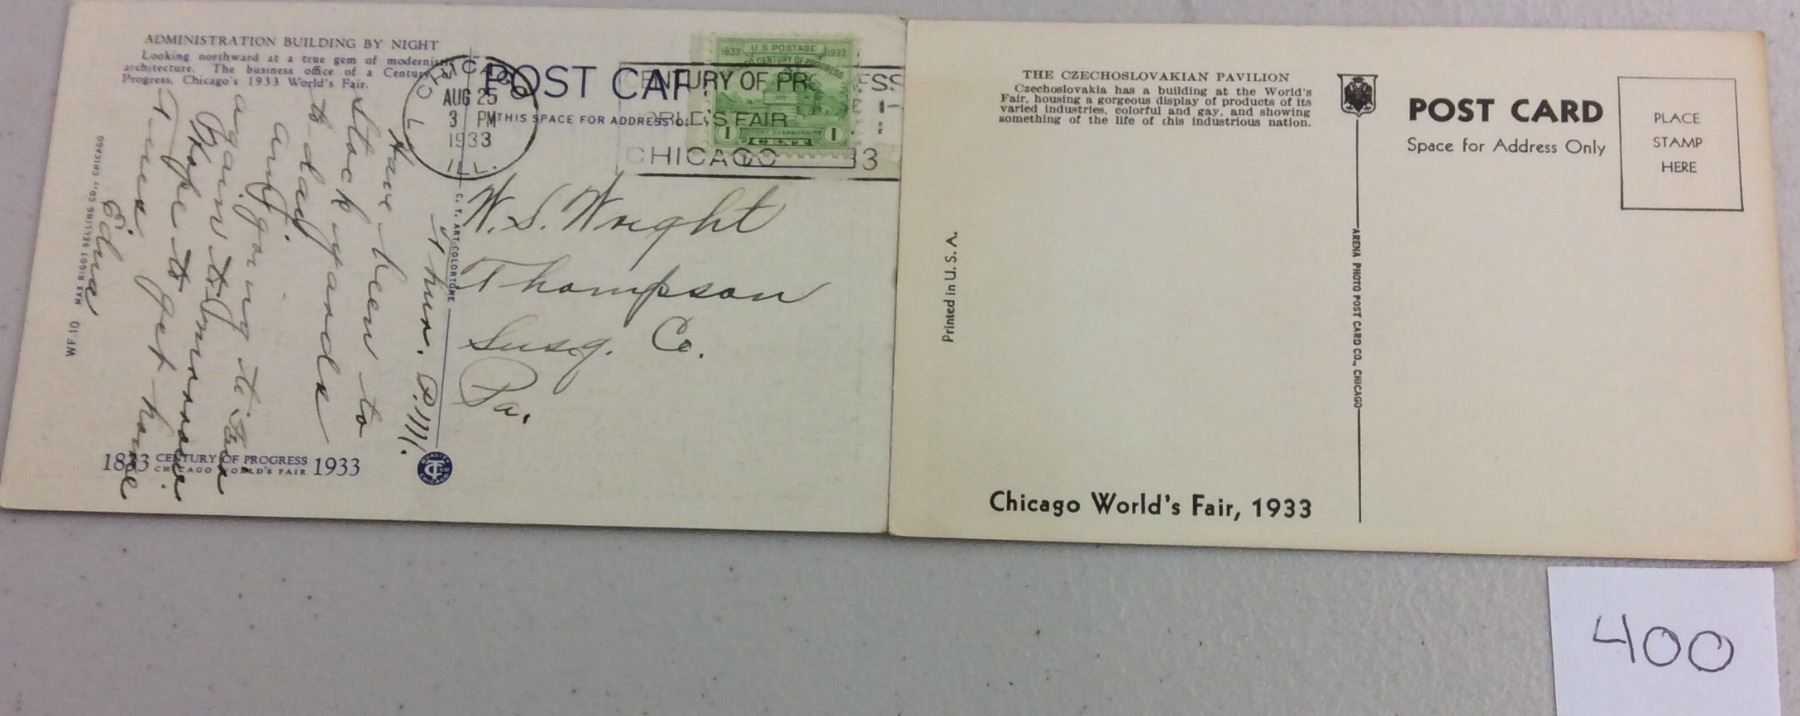 ADMINISTRATION BUILDING BY NIGHT
Looking northward at a true gem of modernistic
architecture. The business office of a Century
Progress, Chicago's 1933 World's Fair.
POST CAR
THIS SPACE FOR ADDRESS O
CHICAGO
AUG 25
3 PM
1933
ILL.
CENTURY OF PROGRESS
WORLD'S FAIR
CHICAGO 33
1833 U S POSTAGE 1933
CENTURY OF PROGRESS
1 CENT 1
Thur. P.M.
Have been to
Stock yards
to day
and
again going to Fair
again tomorrow.
Hope to get home
Edna
W. S. Wright
Thompson
Susq. Co.
Pa.
WF.10 MAX RIGOT SELLING CO., CHICAGO
C. T. ART COLORTONE
1833 CENTURY OF PROGRESS 1933
CHICAGO WORLD'S FAIR
THE CZECHOSLOVAKIAN PAVILION
Czechoslovakia has a building at the World's
Fair, housing a gorgeous display of products of its
varied industries, colorful and gay, and showing
something of the life of this industrious nation.
POST CARD
Space for Address Only
PLACE
STAMP
HERE
Printed in U. S. A.
ARENA PHOTO POST CARD CO., CHICAGO
Chicago World's Fair, 1933
400